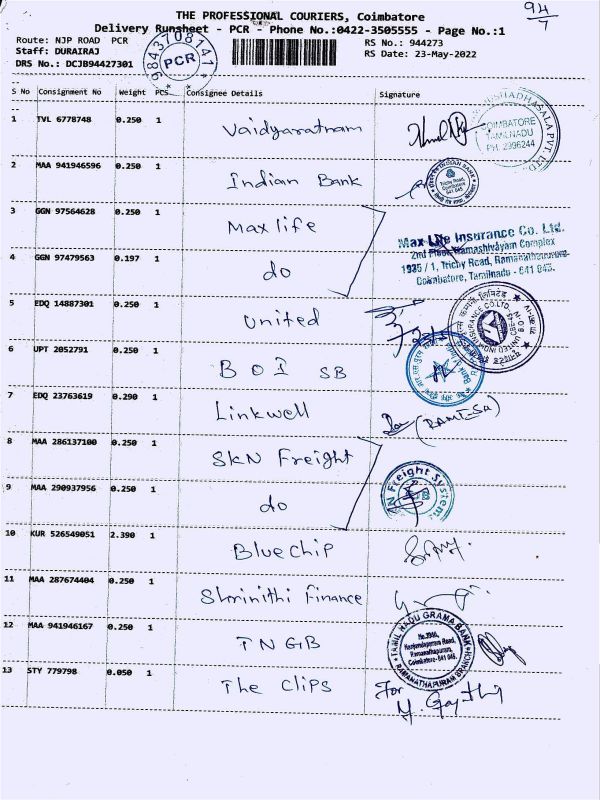 94/7
THE PROFESSIONAL COURIERS, Coimbatore
Delivery Runsheet - PCR - Phone No.:0422-3505555 - Page No.:1
Route: NJP ROAD PCR
RS No.: 944273
Staff: DURAIRAJ
RS Date: 23-May-2022
DRS No.: DCJB94427301
9843708141
PCR
S No Consignment No Weight PCS Consignee Details Signature
1 TVL 6778748 0.250 1 Vaidyaratnam
COIMBATORE
TAMILNADU
PH: 2396244
2 MAA 941946596 0.250 1 Indian Bank
Trichy Road,
Coimbatore
641 045
3 GGN 97564628 0.250 1 Max life
Max Life Insurance Co. Ltd.
2nd Floor, Ramashivayam Complex
4 GGN 97479563 0.197 1 do
1935 / 1, Trichy Road, Ramanathapuram,
Coimbatore, Tamilnadu - 641 045.
5 EDQ 14887301 0.250 1 United
6 UPT 2052791 0.250 1 BOI SB
7 EDQ 23763619 0.290 1 Linkwell
8 MAA 286137100 0.250 1 SKN Freight
Freight System
9 MAA 290937956 0.250 1 do
10 KUR 526549051 2.390 1 Bluechip
11 MAA 287674404 0.250 1 Shrinithi Finance
12 MAA 941946167 0.250 1 TNGB
TAMIL NADU GRAMA BANK
Ramanathapuram,
Coimbatore-641 045.
RAMANATHAPURAM BRANCH
13 STY 779798 0.050 1 The Clips
For